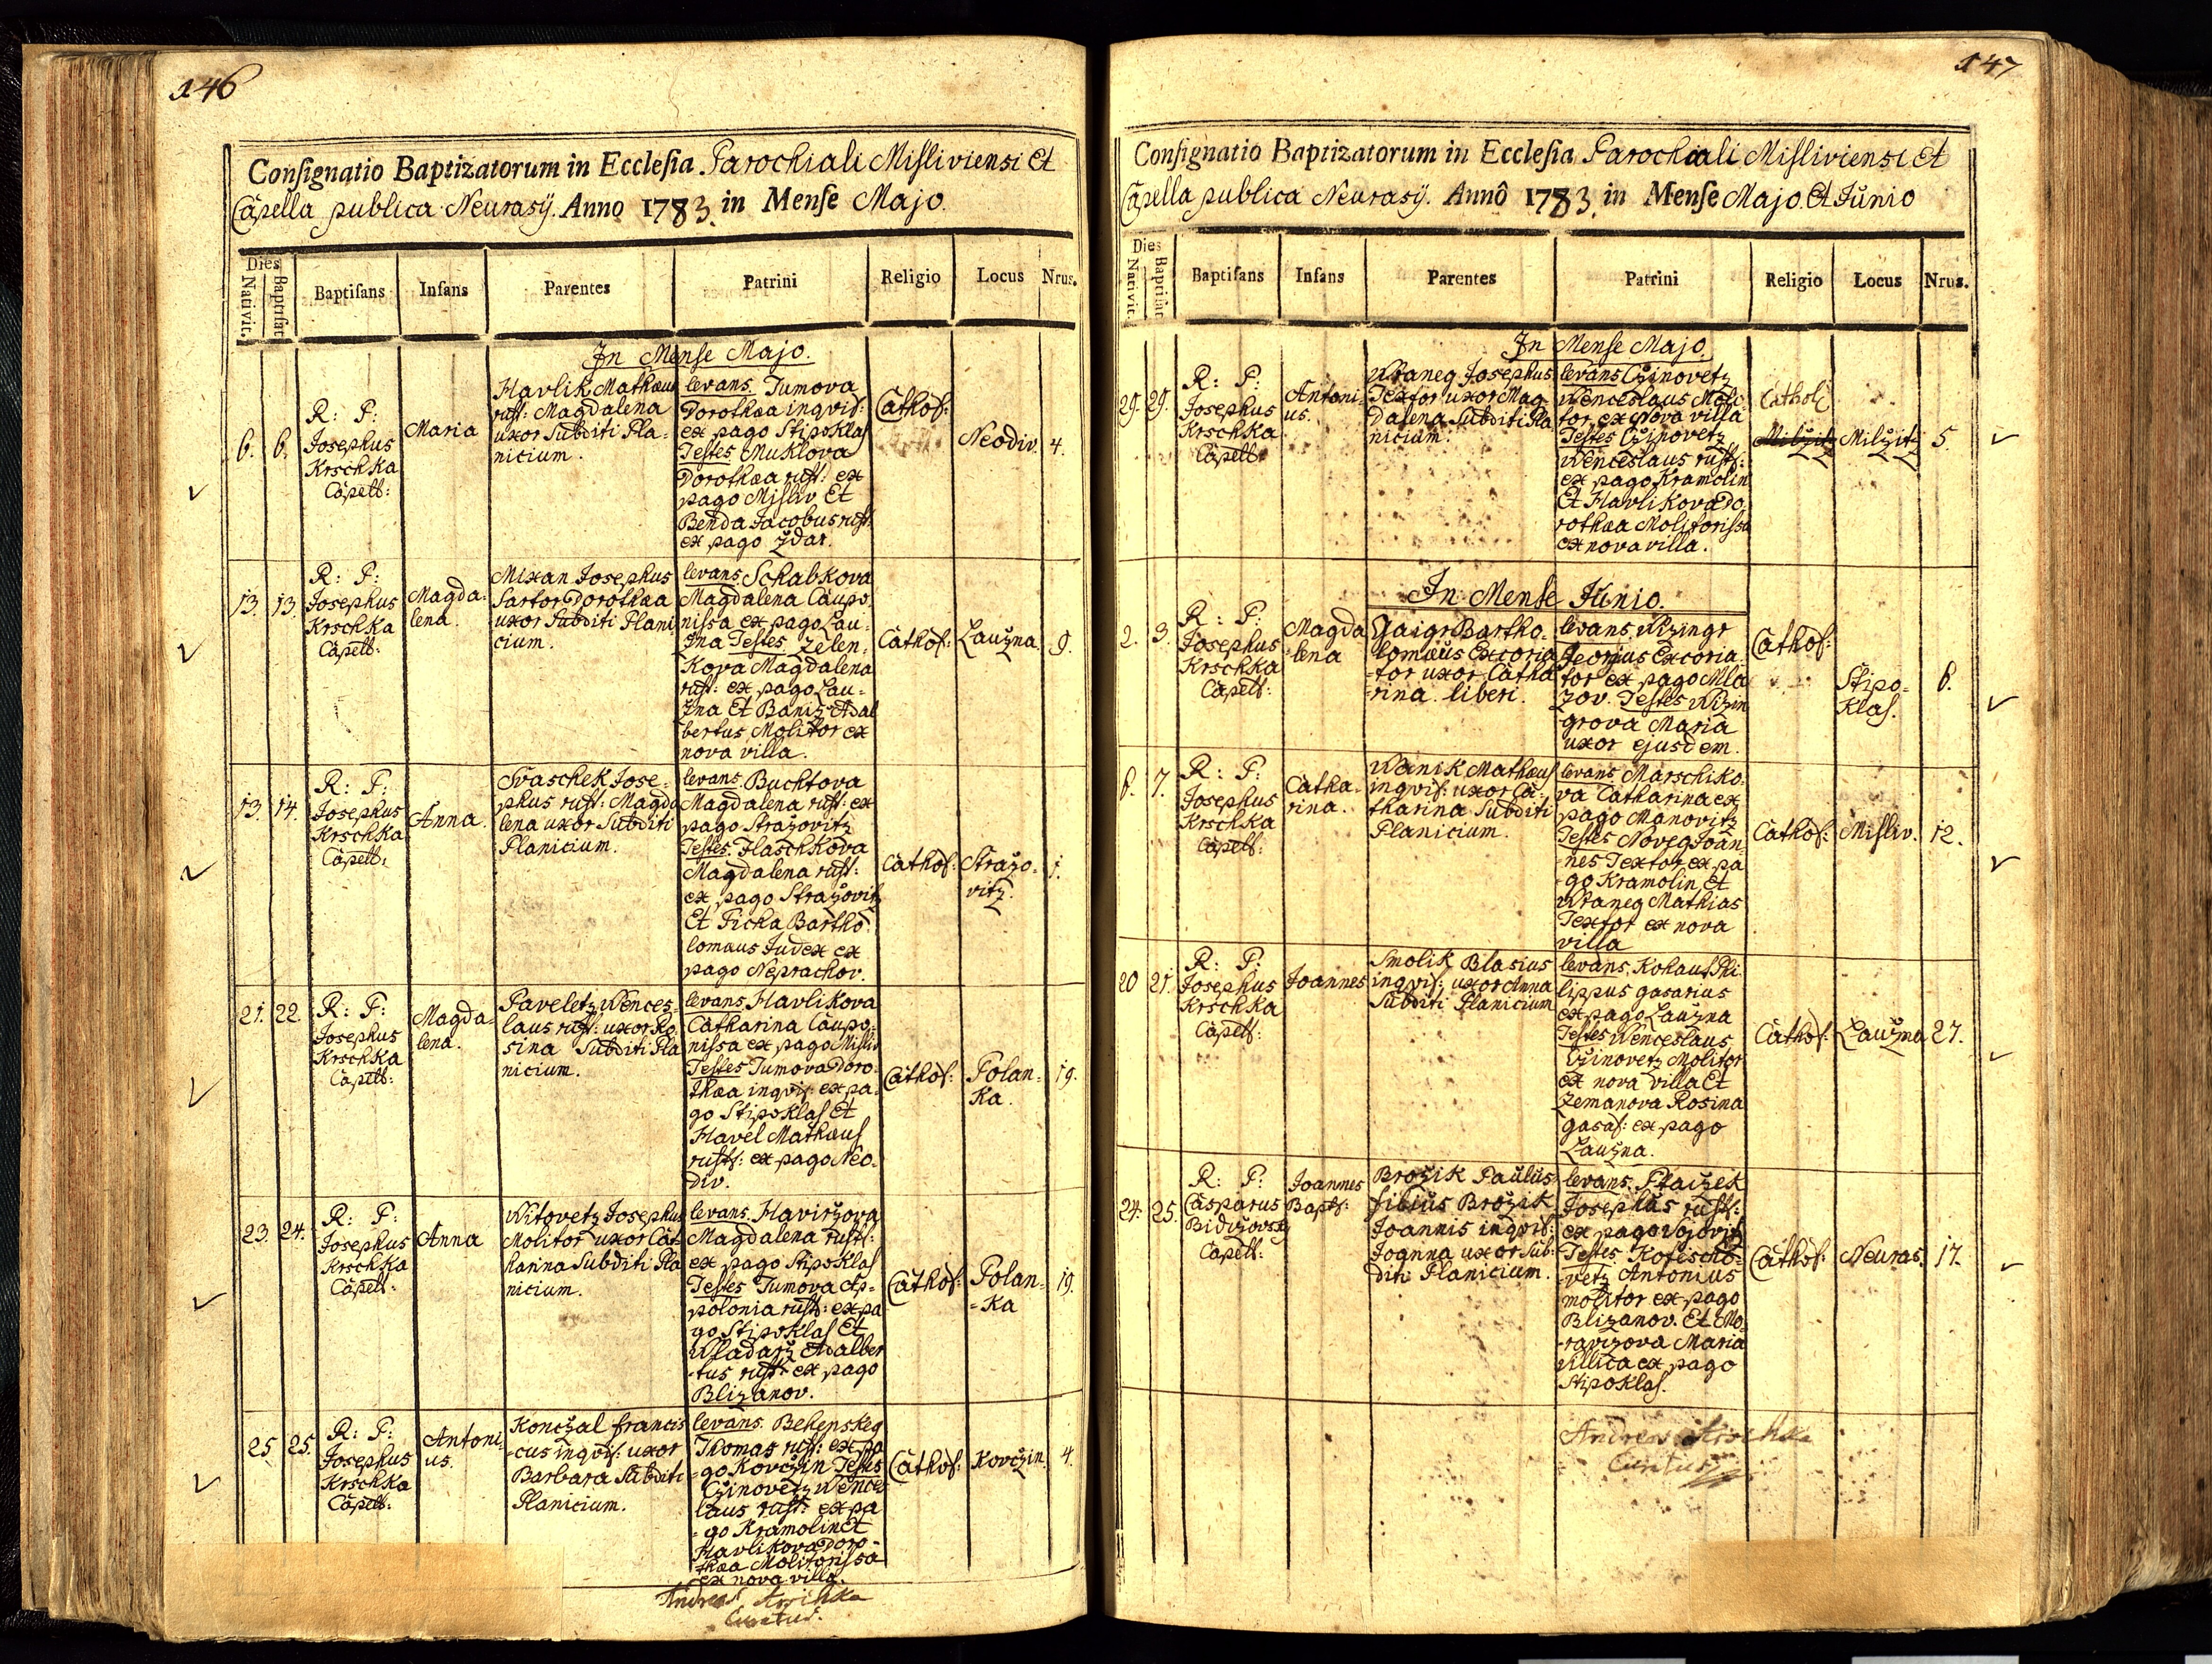 146
Consignatio Baptizatorum in Ecclesia Parochiali Misliviensi Et
Capella publica Neurasÿ. Anno 1783. in Mense Majo.
Dies
Nativit. Baptisat. Baptisans Infans Parentes Patrini Religio Locus Nrus.
In Mense Majo.
6. 6.
R: P:
Josephus
Krschka
Capell:
Maria
Havlik Mathæus
rust: Magdalena
uxor Subditi Pla-
nicium.
levans Tumova
Dorothæa inqvis:
ex pago Stipoklas
Testes Muklova
Dorothæa rust: ex
pago Misliv Et
Benda Jacobus rust:
ex pago Ždar.
Cathol:
Neodiv. 4.
13. 13.
R: P:
Josephus
Krschka
Capell:
Magda-
lena.
Mixan Josephus
Sartor Dorothæa
uxor Subditi Plani
cium.
levans Schabkova
Magdalena Caupo
nissa ex pago Lau-
žna Testes Zelen-
kova Magdalena
rust: ex pago Lau-
žna Et Baniz Adal
bertus Molitor ex
nova villa.
Cathol: Laužna. 9.
13. 14.
R: P:
Josephus
Krschka
Capell:
Anna.
Svaschek Jose-
phus rust: Magda
lena uxor Subditi
Planicium.
levans Buchtova
Magdalena rust: ex
pago Stražovitz
Testes Flaschkova
Magdalena rust:
ex pago Stražovitz
Et Ficka Bartho
lomæus Judex ex
pago Neprachov.
Cathol: Stražo-
vitz. 1.
21. 22.
R: P:
Josephus
Krschka
Capell:
Magda-
lena.
Paveletz Wences-
laus rust: uxor Ro
sina Subditi Pla
nicium.
levans Havlikova
Catharina Caupo-
nissa ex pago Misliv
Testes Tumova Doro-
thæa inqvis: ex pa-
go Stipoklas Et
Havel Mathæus
rust: ex pago Neo-
div.
Cathol: Polan-
ka. 19.
23. 24.
R: P:
Josephus
Krschka
Capell:
Anna
Witovetz Josephus
Molitor uxor Cat
harina Subditi Pla
nicium.
levans Haviržova
Magdalena rust:
ex pago Stipoklas
Testes Tumova Ap-
polonia rust: ex pa
go Stipoklas Et
Wladarž Adalber
-tus rust: ex pago
Blizanov.
Cathol: Polan-
-ka 19.
25. 25.
R: P:
Josephus
Krschka
Capell:
Antoni-
us.
Konczal francis
-cus inqvis: uxor
Barbara Subditi
Planicium.
levans Behenskeg
Thomas rust: ex pa
-go Kovczin Testes
Czinovetz Wences
laus rust: ex pa
-go Kramolin Et
Havlikova Doro-
thæa Molitorissa
ex nova villa.
Cathol: Kovczin. 4.
Andreas Krschka
Curatus.
147
Consignatio Baptizatorum in Ecclesia Parochiali Misliviensi Et
Capella publica Neurasÿ. Anno 1783. in Mense Majo. Et Junio
Dies
Nativit. Baptisat. Baptisans Infans Parentes Patrini Religio Locus Nrus.
In Mense Majo.
29. 29.
R: P:
Josephus
Krschka
Capell:
Antoni-
us.
Wraneg Josephus
Textor uxor Mag-
dalena Subditi Pla
nicium.
levans Czinovetz
Wenceslaus Moli-
tor ex Nova villa
Testes Czinovetz
Wenceslaus rust:
ex pago Kramolin
Et Havlikova Do
rothæa Molitorissa
ex nova villa.
Catholi
Milžitz Milžitz 5
In Mense Junio.
2. 3.
R: P:
Josephus
Krschka
Capell:
Magda
-lena
Gaigr Bartho-
lomæus Excoria
-tor uxor Catha
-rina liberi.
levans Wizingr
Georgius Excoria
tor ex pago Mla
zov. Testes Wizin
grova Maria
uxor ejusdem.
Cathol:
Stipo-
klas. 6.
6. 7.
R: P:
Josephus
Krschka
Capell:
Catha-
rina.
Wanik Mathæus
inqvis: uxor Ca-
tharina Subditi
Planicium.
levans Marschiko
va Catharina ex
pago Manovitz
Testes Noveg Joan
-nes Textor ex pa
-go Kramolin Et
Wraneg Mathias
Textor ex nova
villa
Cathol: Misliv. 12.
20 21.
R: P:
Josephus
Krschka
Capell:
Joannes
Smolik Blasius
inqvis: uxor Anna
Subditi Planicium
levans Kohaut Phi
lippus gasarius
ex pago Laužna
Testes Wenceslaus
Czinovetz Molitor
ex nova villa Et
Zemanova Rosina
gasas: ex pago
Laužna.
Cathol: Laužna 27.
24. 25.
R: P:
Casparus
Bidziovsky
Capell:
Joannes
Bapt:
Brožik Paulus
filius Brožik
Joannis inqvis:
Joanna uxor Sub-
diti Planicium.
levans Ptaczek
Josephus rust:
ex pago Vojovitz
Testes Kotescho-
vetz Antonius
molitor ex pago
Blizanov. Et Mo
-ravizova Maria
villica ex pago
Stipoklas.
Cathol: Neuras. 17.
Andreas Krschka
Curatus